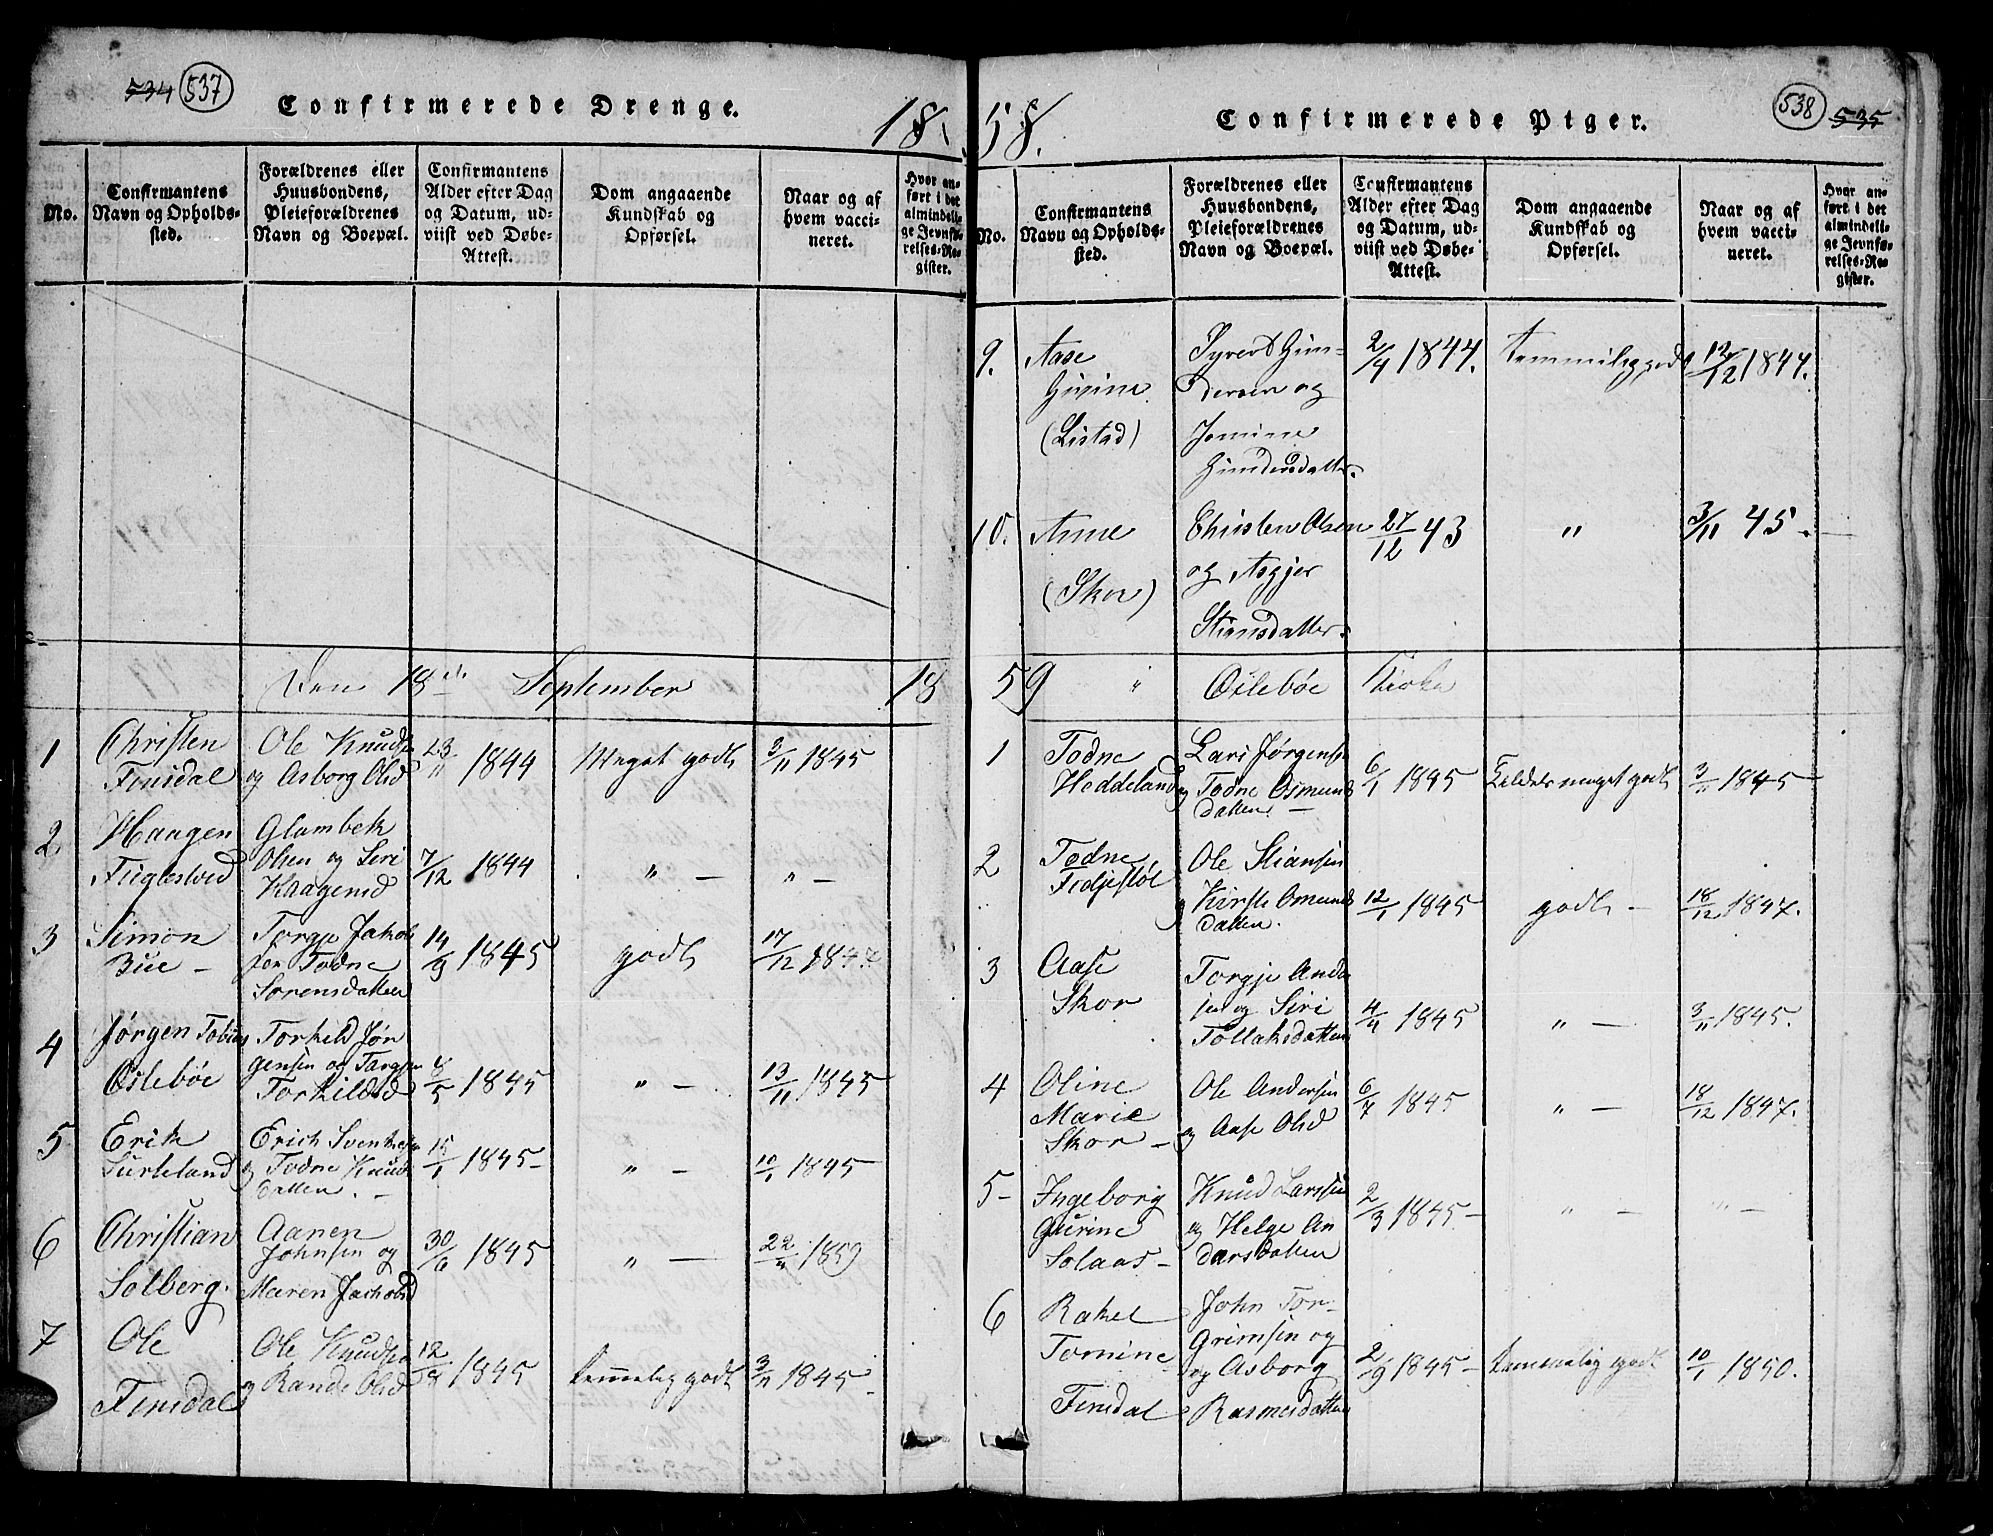 534 537
Confirmerede Drenge.
18
No.
Confirmantens
Navn og Opholds-
sted.
Forældrenes eller
Huusbondens,
Pleieforældrenes
Navn og Boepæl.
Confirmantens
Alder efter Dag
og Datum, ud-
viist ved Døbe-
Attest.
Dom angaaende
Kundskab og
Opførsel.
Naar og af
hvem vacci-
neret.
Hvor an-
ført i det
almindeli-
ge Jevnfø-
relses-Re-
gister.
Den 18 September 18
1
Christen
Finsdal
Ole Knuds
og Asborg Olsd
23/11 1844
Meget godt
3/11 1845
2
Haagen
Glambek
Olsen og Siri
Haagensd
7/12 1844
" —
" —
3
Simon
Bue —
Torgje Jakob
sen Todne
Sørensdatter
14/9 1845
godt
17/12 1847
4
Jørgen Tobias
Oslebøe
Torkeld Jør
gensen og
Torkildsd
8/5 1845
" —
13/11 1845
5
Erik
Surteland
Erich
og Todne Knuds
datter. —
15/1 1845 —
" —
10/1 1845
6
Christian
Solberg.
Aanen
Johnsen og
Maren Jachobsd
30/6 1845
" —
22/4 1859
7
Ole
Finsdal
Ole Knuds
og Rande Olsd
12/8 1845
temmelig godt
3/11 1845 —
58.
Confirmerede Piger.
538 535
No.
Confirmantens
Navn og Opholds-
sted.
Forældrenes eller
Huusbondens,
Pleieforældrenes
Navn og Boepæl.
Confirmantens
Alder efter Dag
og Datum, ud-
viist ved Døbe-
Attest.
Dom angaaende
Kundskab og
Opførsel.
Naar og af
hvem vacci-
neret.
Hvor an-
ført i det
almindeli-
ge Jevnfø-
relses-Re-
gister.
9.
Aase
Gurine
(Listad)
Syvert Gun-
dersen og
Jomine
Gundersdatter.
2/4 1844.
temmelig godt
12/12 1847.
10.
Anne
(Skor)
Christen Olsen
og Asgjer
Stiansdatter.
27/12 43
"
3/11 45. —
59 " Oslebøe Kirke
1
Todne
Heddeland
Lars Jørgens
og Todne Osmunds
datter. —
6/1 1845
meget godt
3/11 1845
2
Todne
Fidjestøl
Ole Stiansen
og Kirste Omunds
datter.
12/1 1845
godt —
18/12 1847.
3
Aase
Skor
Torgje Andr
sen og Siri
Tollaksdatter
4/4 1845
" —
3/11 1845.
4
Oline
Marie
Skor —
Ole Andersen
og Aase Olsd
6/7 1845
" —
18/12 1847.
5 —
Ingeborg
Gurine
Solaas —
Knud Larssen
og Helge An
dersdatter
2/3 1845 —
" —
" —
6
Rakel
Tomine
Finsdal
John Tor-
Grimsen og
og Asborg
Rasmusdatter
2/9 1845 —
temmelig godt
10/1 1850.